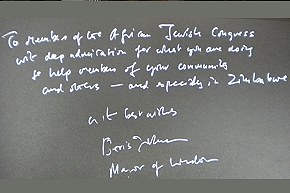 To members of the African Jewish Congress
with deep admiration for what you are doing
to help members of your community
and others — and especially in Zimbabwe
with best wishes
Boris Johnson
Mayor of London